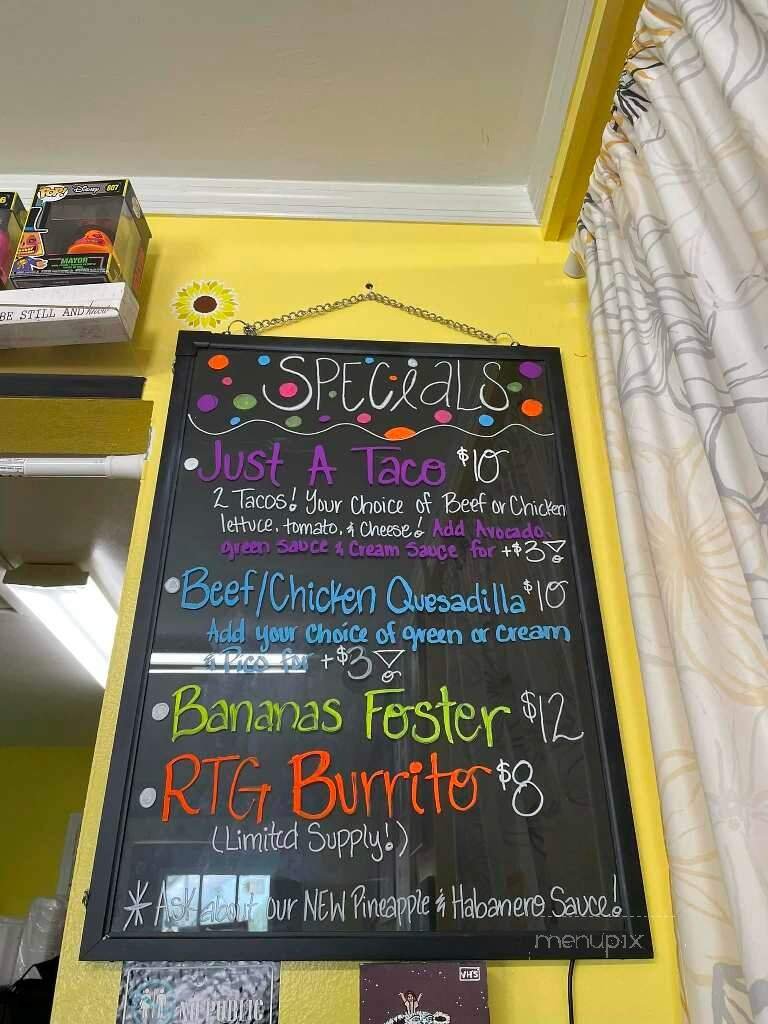 POP!
Disney
807
MAYOR
BE STILL AND know
SPECIALS
Just A Taco $10
2 Tacos! Your Choice of Beef or Chicken
lettuce, tomato, & Cheese! Add Avocado,
green sauce & Cream Sauce for +$3
Beef/Chicken Quesadilla $10
Add your choice of green or cream
& Pico for +$3
Bananas Foster $12
RTG Burrito $8
(Limited Supply!)
* Ask about our NEW Pineapple & Habanero Sauce!
menupix
VHS